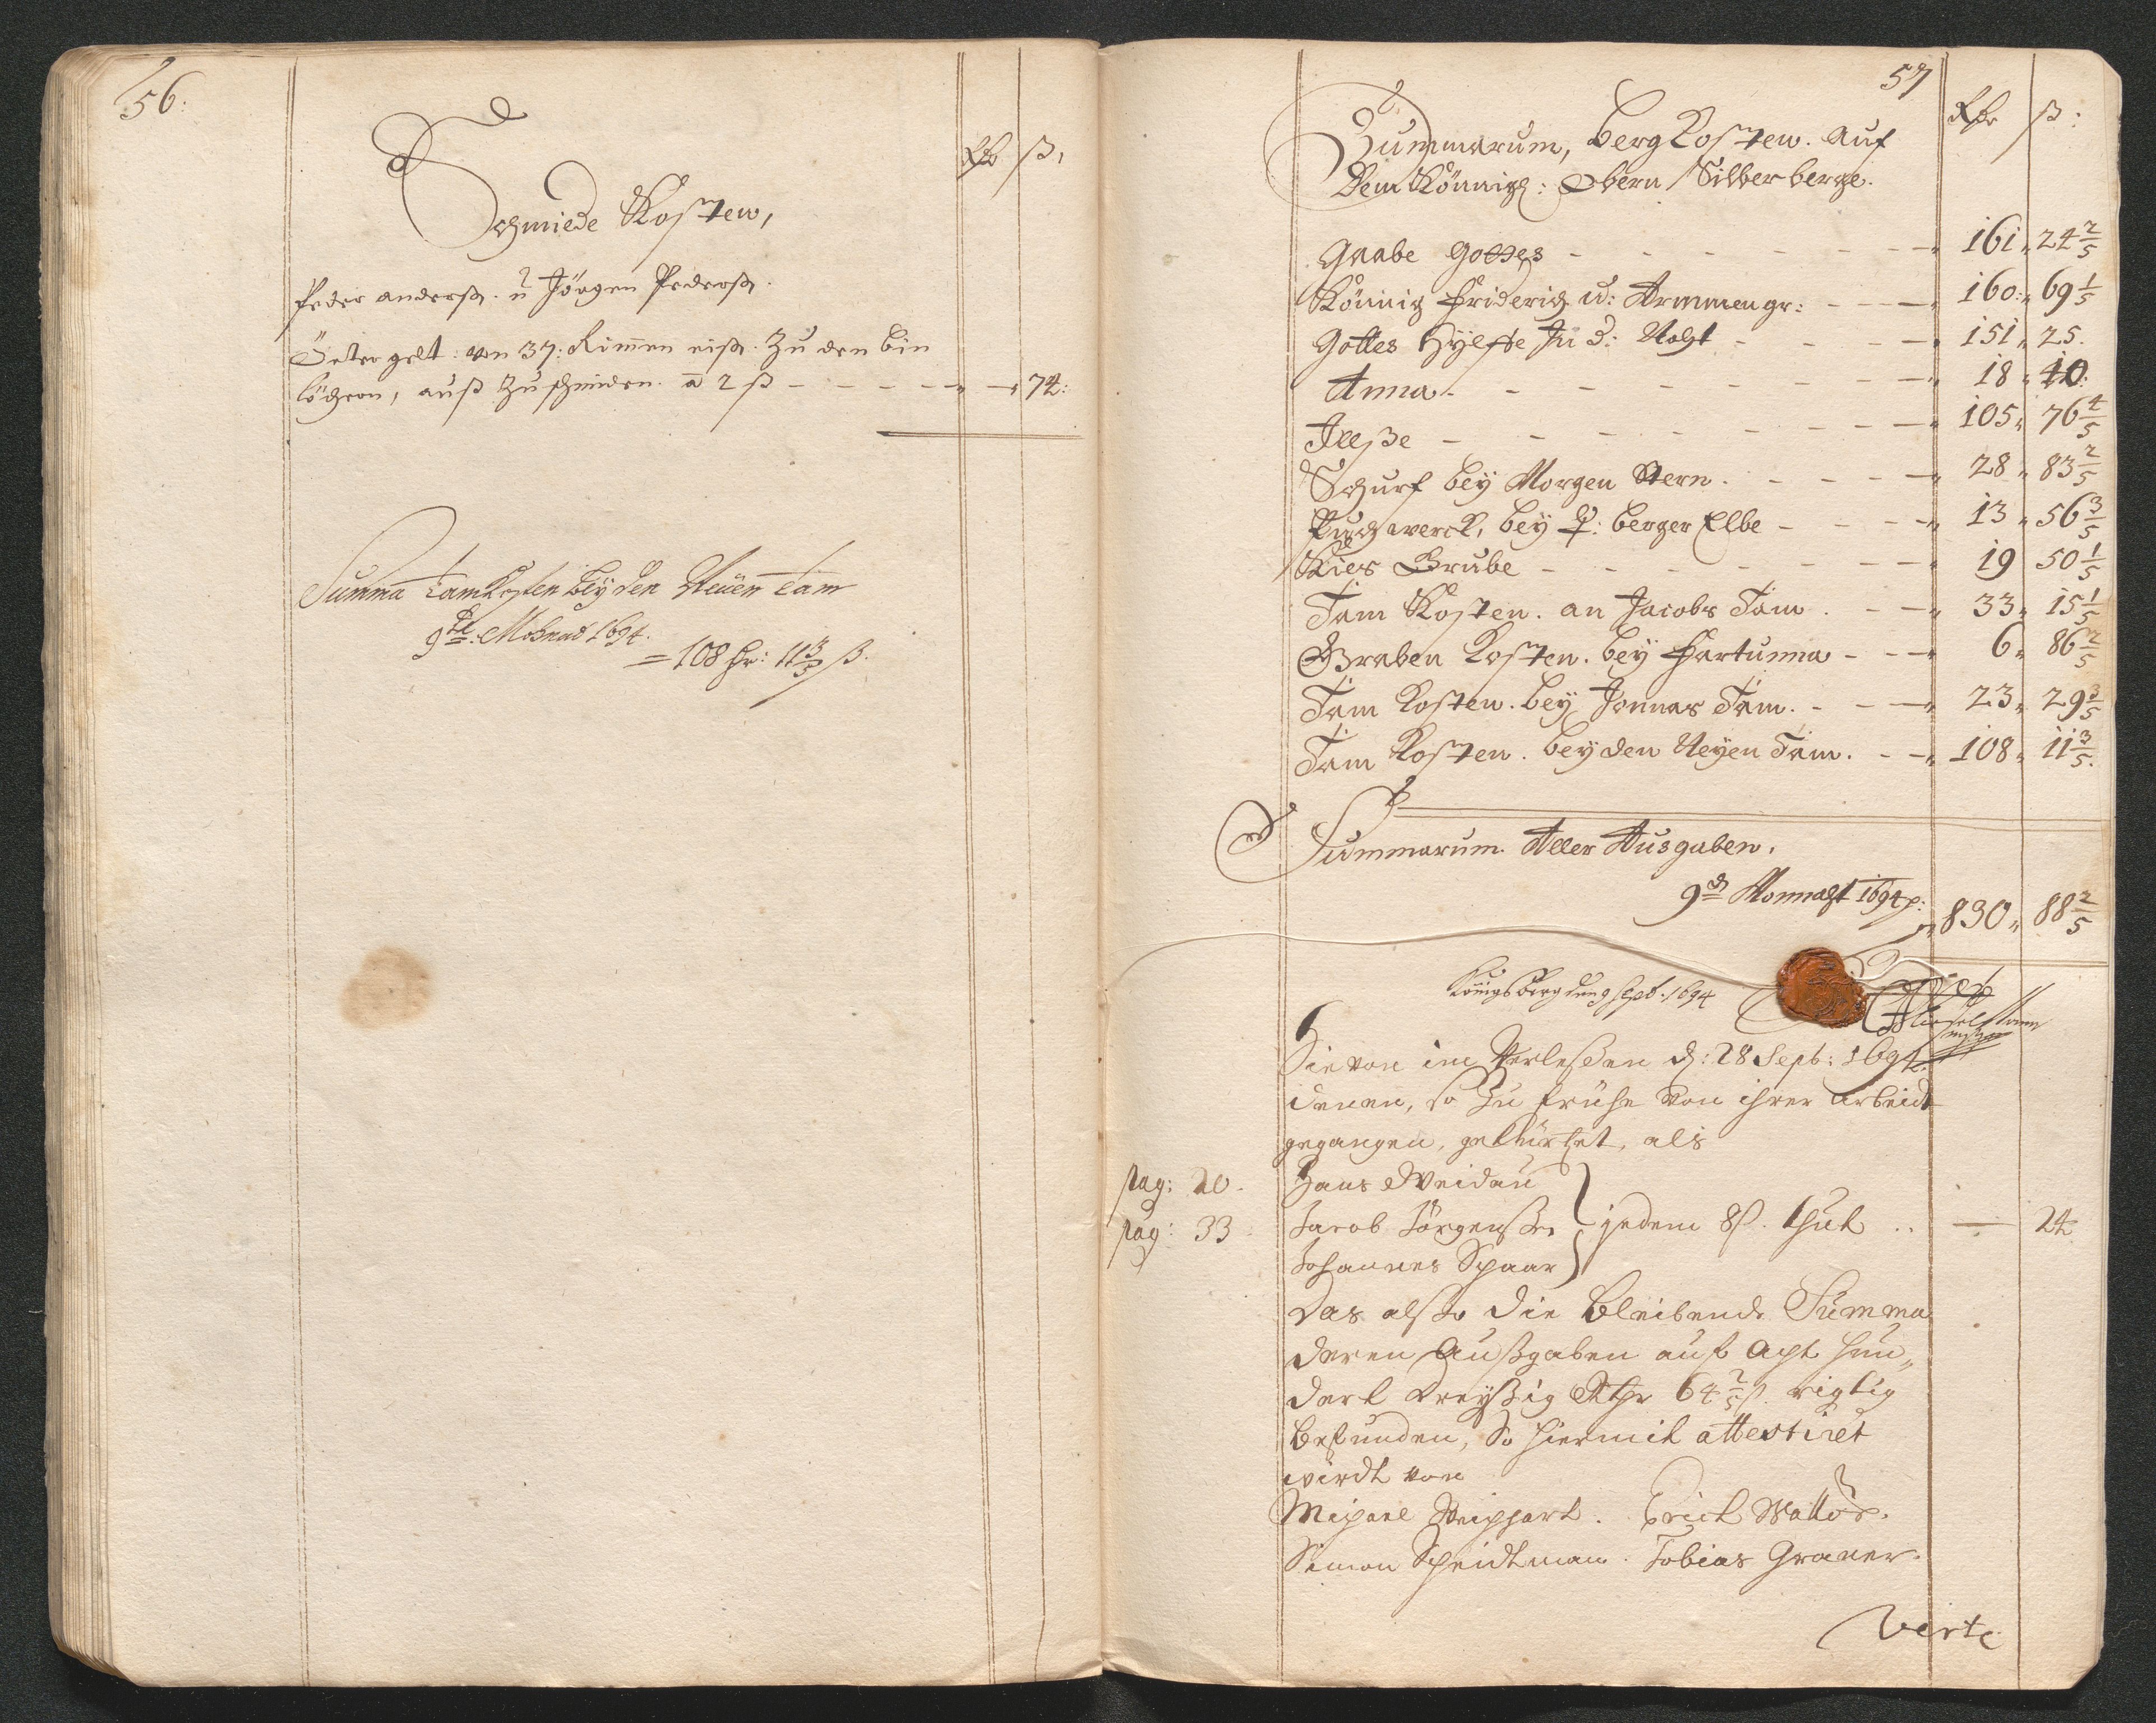 56:
Rthr ß:
Schmiede Kosten,
Peder anderß. u Jörgen Pederß.
Öster gelt: von 37: Rimen eiß. Zu den bin
löchern, auß Zu schmiden. a 2 ß - - - - - 74:
Summa Tam Kosten bey den Neuen Tam
9te: Mohnad 1694.
= 108 hr: 11 3/5 ß.
57
Rthr ß:
Summarum, berg Kosten. auf
Dem Könnigl: Obern Silber berge.
Gaabe Gottes - - - - - - 161 24 2/5
Könnig Friderich u: Armmen gr: - - - 160: 69 1/5
Gottes Hylffe In d: Noht - - - - 151 25.
Anna - - - - - - - - 18 10:
Ilße - - - - - - - - 105 76 4/5
Schurf bey Morgen Stern. - - - - 28 83 2/5
Puchwerck, bey ☿: berger Elbe - - - - 13 56 3/5
Kies Grube - - - - - - - 19 50 1/5
Tam Kosten. an Jacobs Tam. - - - 33 15 1/5
Graben Kosten. bey Fartunna - - - 6 86 2/5
Tam Kosten. bey Jonnas Tam. - - - 23 29 3/5
Tam Kosten. bey den Neyen Tam. - - 108 11 3/5.
Summarum Aller Ausgaben.
9d Monnaht 1694 p: 830 88 2/5
Königsberg den 9 Sept: 1694
Hievon im Verleßen d: 28 Sept: 1694.
denen, so Zu frühe von ihrer arbeidt
gegangen, gekürtzet, als
pag: 20. Hans Weidau
pag: 33 Jacob Jörgenßen } jedem 8 ß. thut .. — 24
Johannes Spaar
Das alßo die bleibende Summa
deren Außgaben auf Acht hun„
dert dreyßig Rthr 64 2/5 ß. richtig
befunden, So hiermit attestiret
wirdt von
Michael Weichhart. Erich Wallör.
Simon Scheidtman. Tobias Graner.
Verte